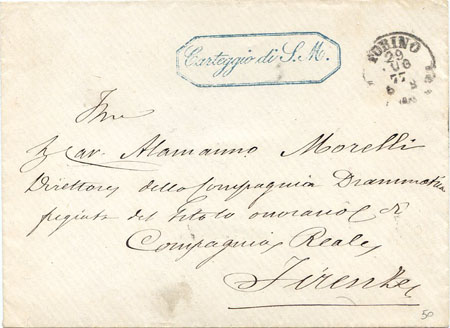 Carteggio di S. M.
TORINO
29
77
Cav. Alamanno Morelli
Direttore della Compagnia Drammatica
fregiata del titolo onorario di
Compagnia Reale
Firenze
50